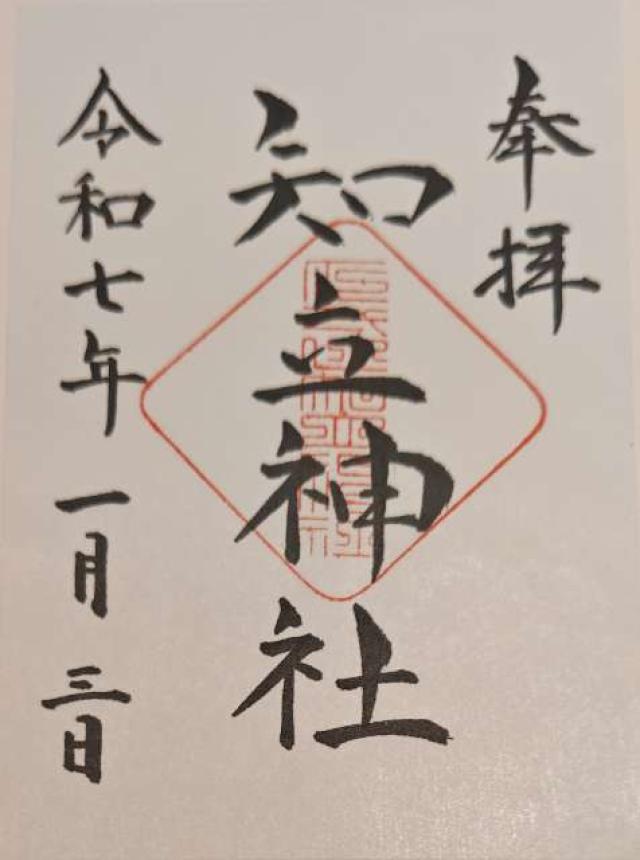 奉拝
知立神社
令和七年 一月 三日